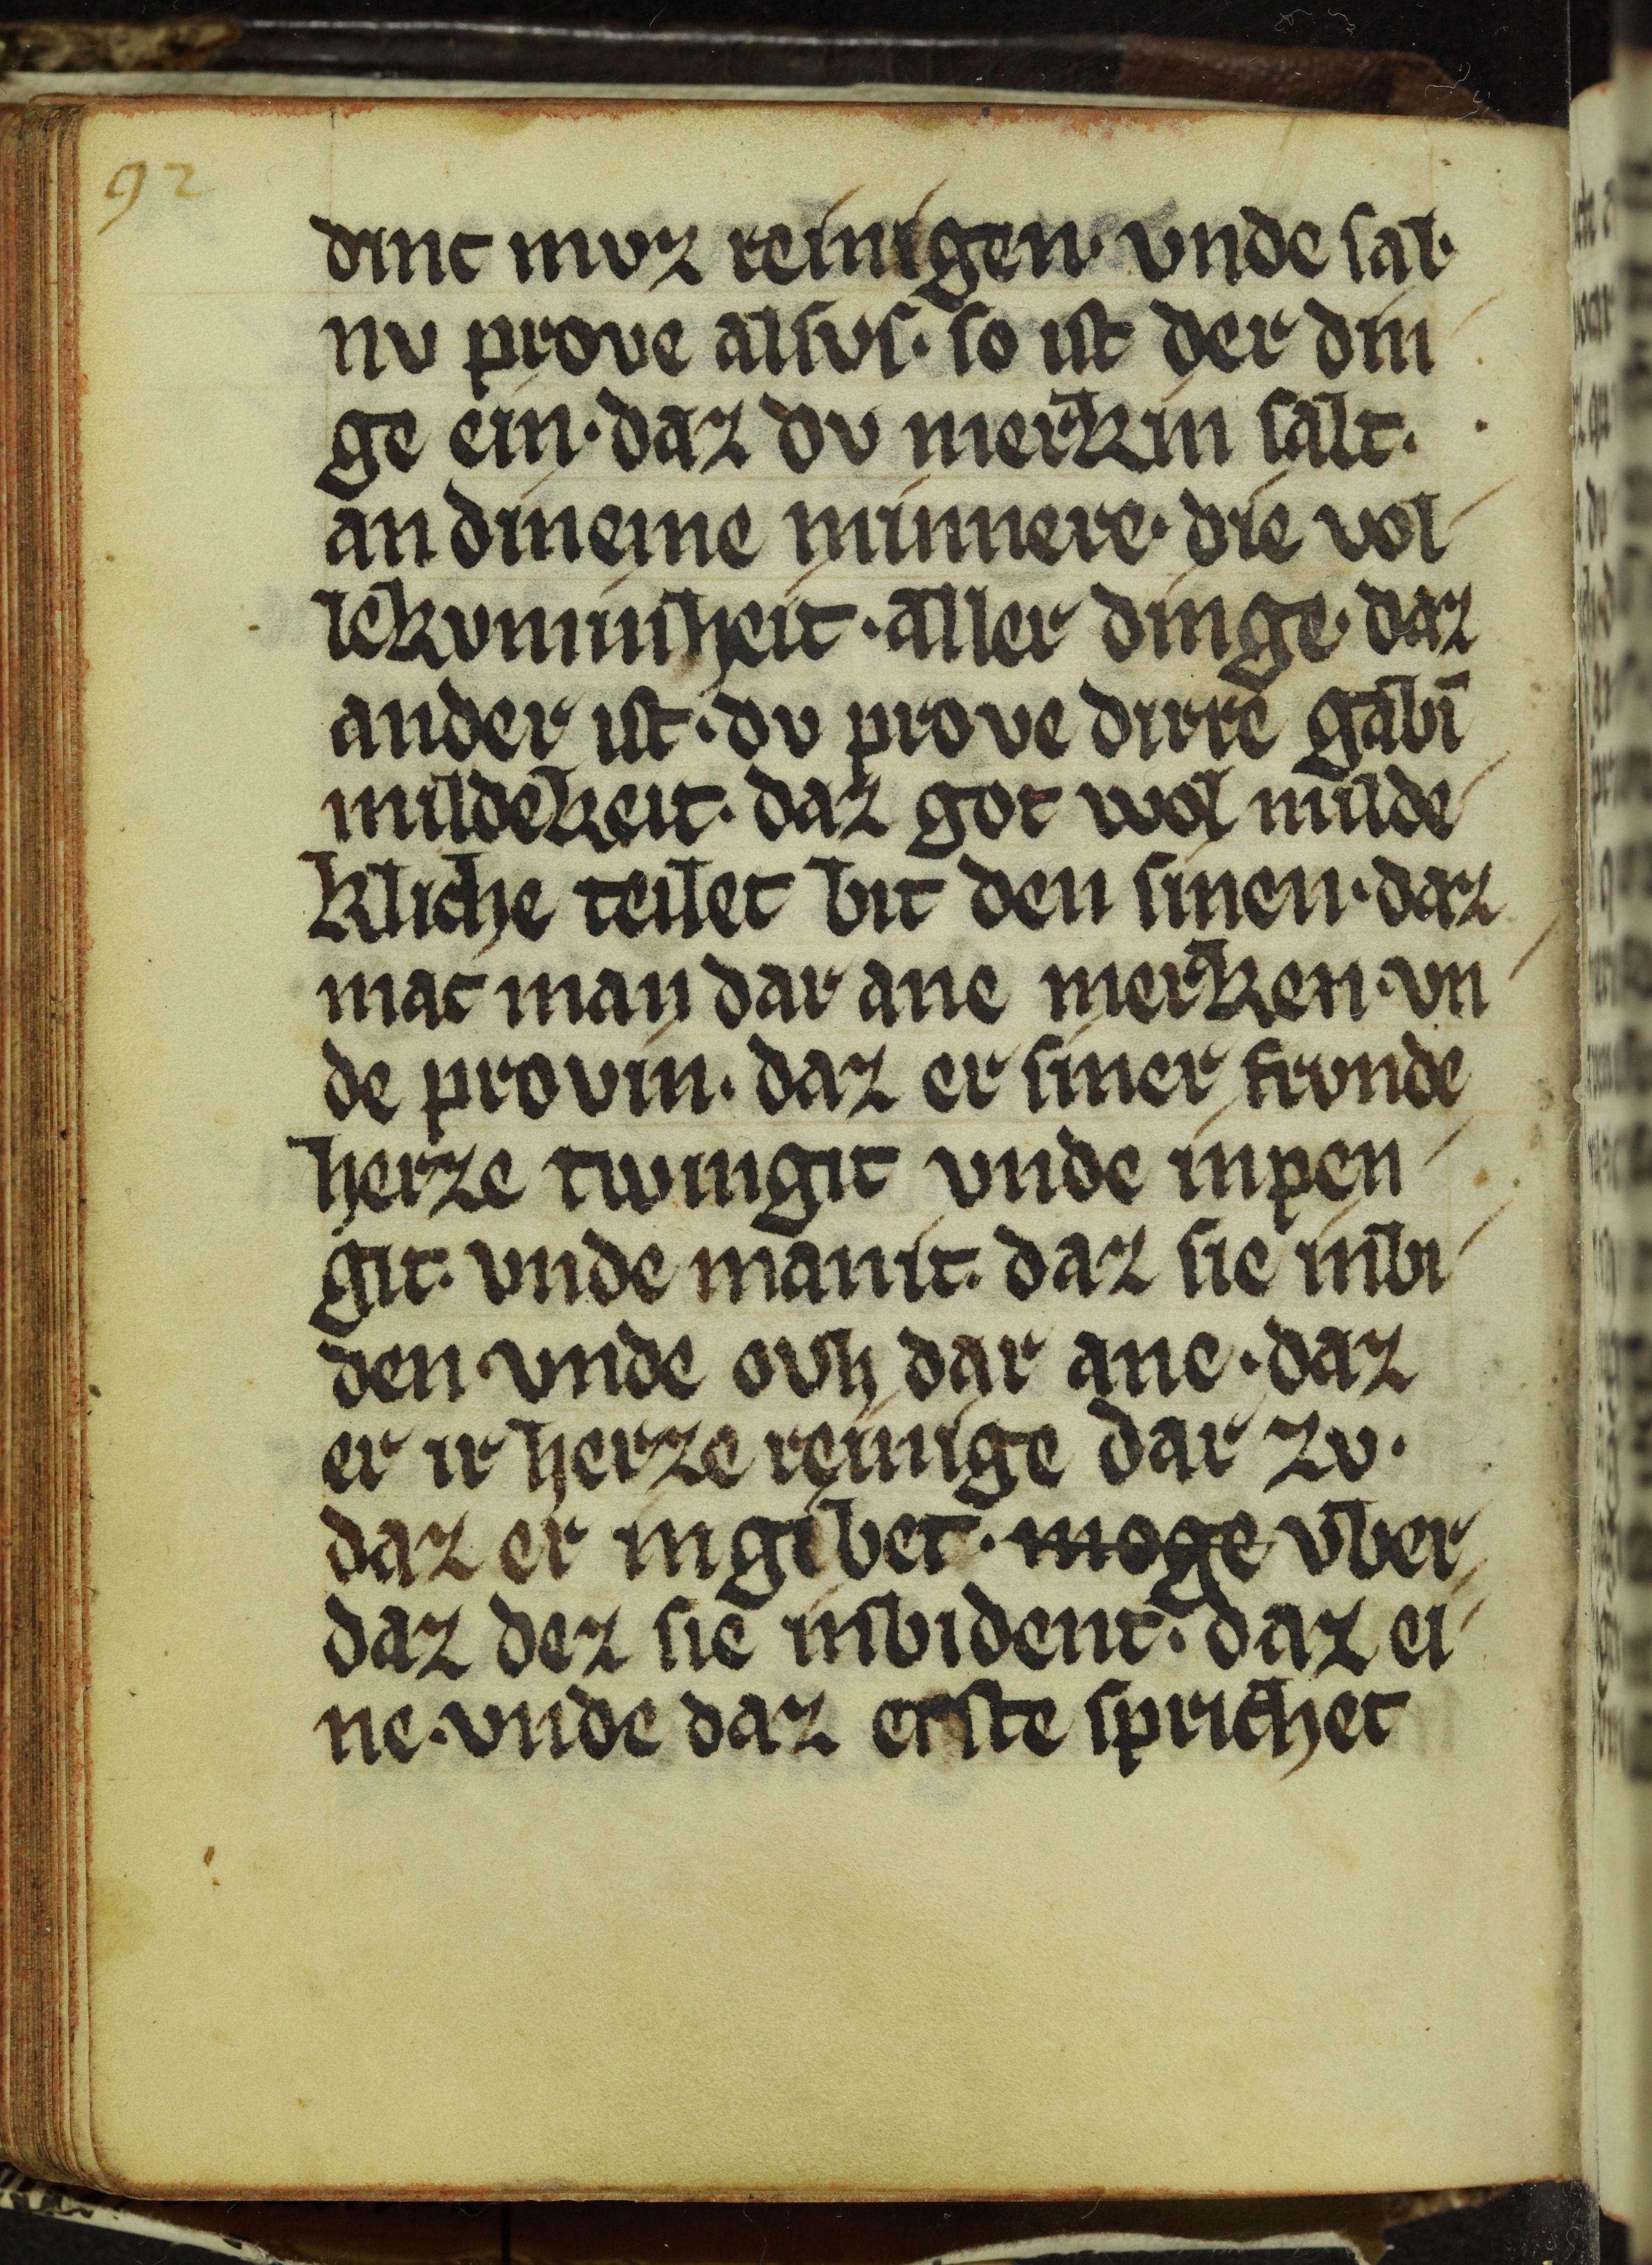 92
dinc mvz reinigen· vnde sal·
nv prove alsvs· so ist der din
ge ein· daz dv merkin salt·
an dineme minnere· die vol
lekvminheit· aller dinge· daz
ander ist· dv prove dirre gabī
mildekeit· daz got wol milde
kliche teilet bit den sinen· daz
mac man dar ane merken· vn
de provin· daz er siner frvnde
herze twingit vnde inpen
git· vnde manit· daz sie inbi
den· vnde ovh dar ane· daz
er ir herze reinige dar zv·
daz er in gibet· moge vber
daz dez sie inbident· daz ei
ne· vnde daz erste sprichet